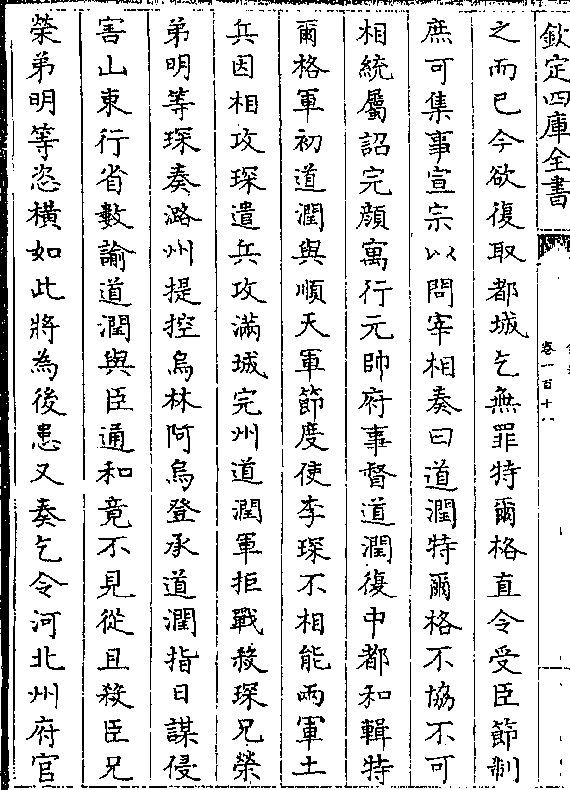 欽定四庫全書
卷一百十八
之而已今欲復取都城乞無罪特爾格直令受臣節制
庶可集事宣宗以問宰相奏曰道潤特爾格不協不可
相統屬詔完顔寓行元帥府事督道潤復中都和輯特
爾格軍初道潤與順天軍節度使李琛不相能兩軍士
兵因相攻琛遣兵攻滿城完州道潤軍拒戰殺琛兄榮
弟明等琛奏潞州提控烏林阿烏登承道潤指日謀侵
害山東行省數諭道潤與臣通和竟不見從且殺臣兄
榮弟明等恣橫如此將為後患又奏乞令河北州府官